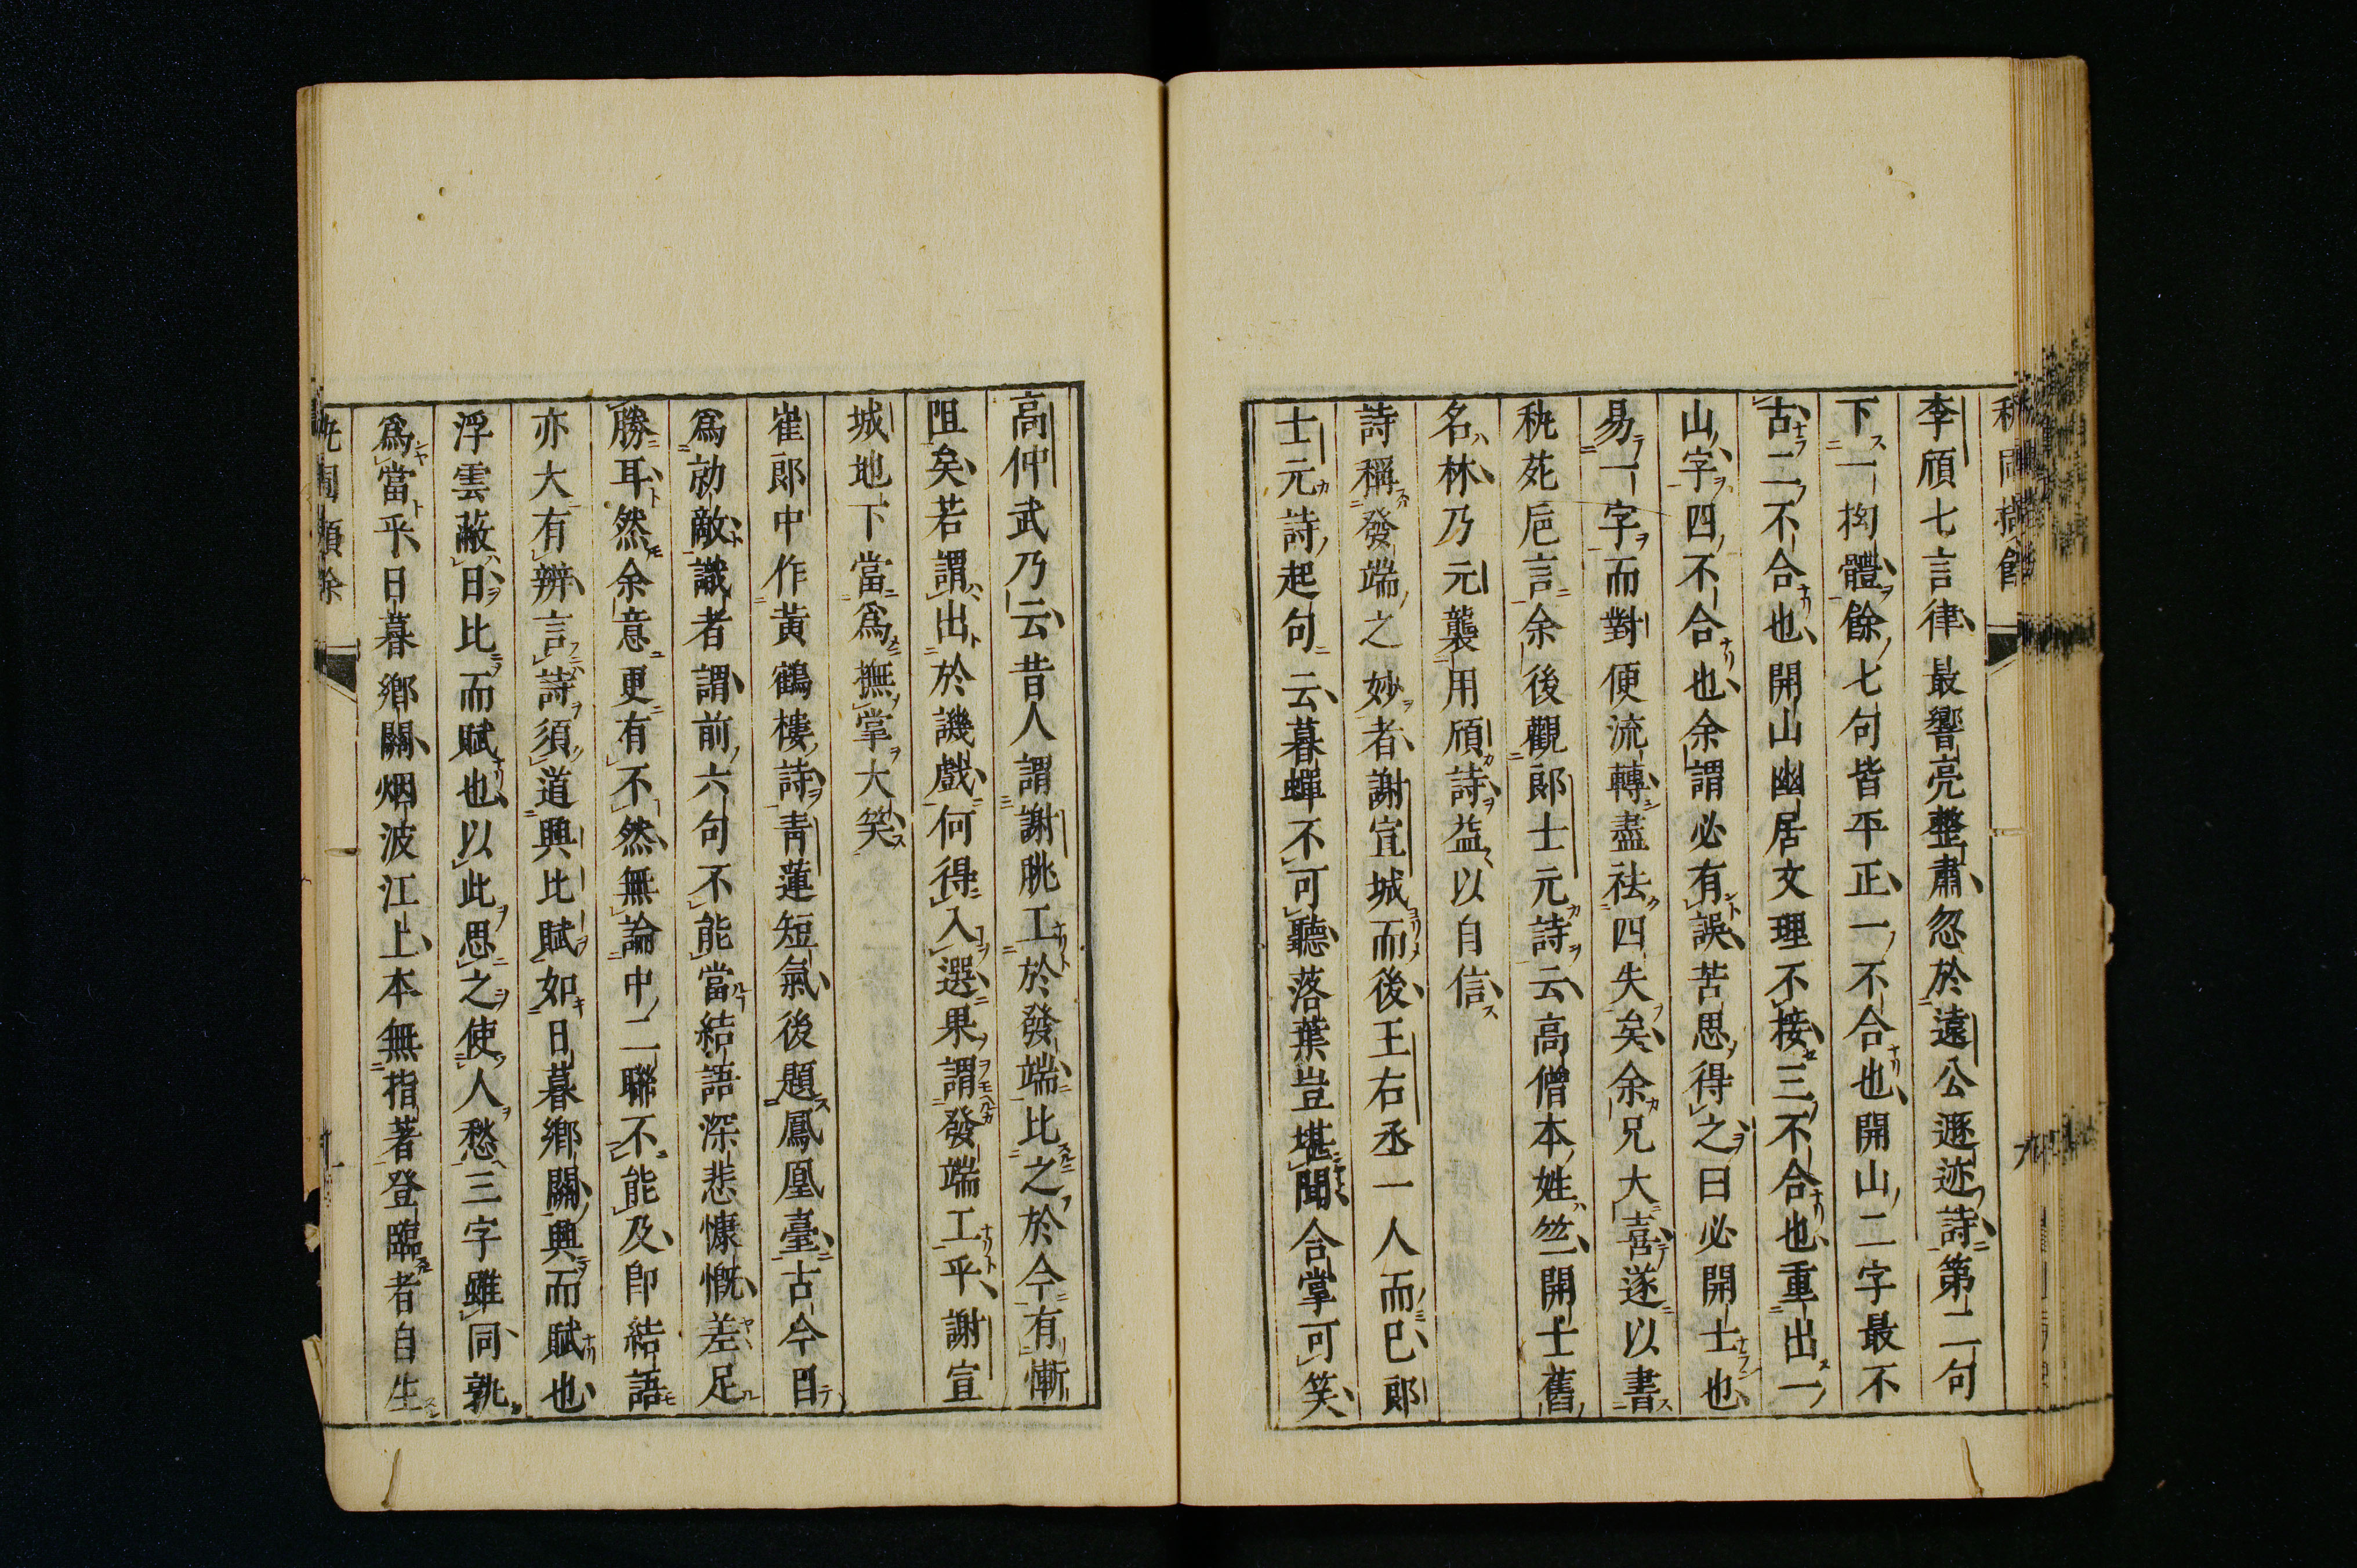 李頎七言律最響亮整肅忽於遠公遯迹詩第二句
下一拗體餘七句皆平正一不合也開山二字最不
古二不合也開山幽居文理不接三不合也重出一
山字四不合也余謂必有誤苦思得之曰必開士也
易一字而對便流轉盡祛四失矣余兄大喜遂以書
秇苑巵言余後觀郎士元詩云高僧本姓竺開士舊
名林乃元襲用頎詩益以自信
詩稱發端之妙者謝宣城而後王右丞一人而已郎
士元詩起句云暮蟬不可聽落葉豈堪聞合掌可笑
高仲武乃云昔人謂謝朓工於發端比之於今有慚
阻矣若謂出於譏戲何得入選果謂發端工乎謝宣
城地下當爲撫掌大笑
崔郎中作黃鶴樓詩青蓮短氣後題鳳凰臺古今目
爲勍敵識者謂前六句不能當結語深悲慷慨差足
勝耳然余意更有不然無論中二聯不能及卽結語
亦大有辨言詩須道興比賦如日暮鄉關興而賦也
浮雲蔽日比而賦也以此思之使人愁三字雖同孰
爲當乎日暮鄉關烟波江上本無指著登臨者自生